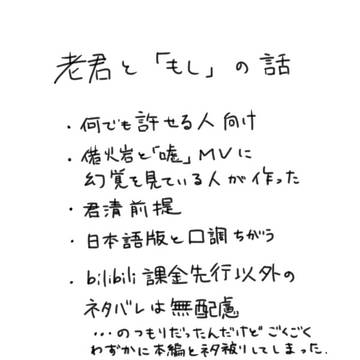 老君と「もし」の話
・何でも許せる人向け
・借火岩と「嘘」MVに
幻覚を見ている人が作った
・君清前提
・日本語版と口調ちがう
・bilibili課金先行以外の
ネタバレは無配慮
…のつもりだったんだけどごくごく
わずかに本編とネタ被りしてしまった.